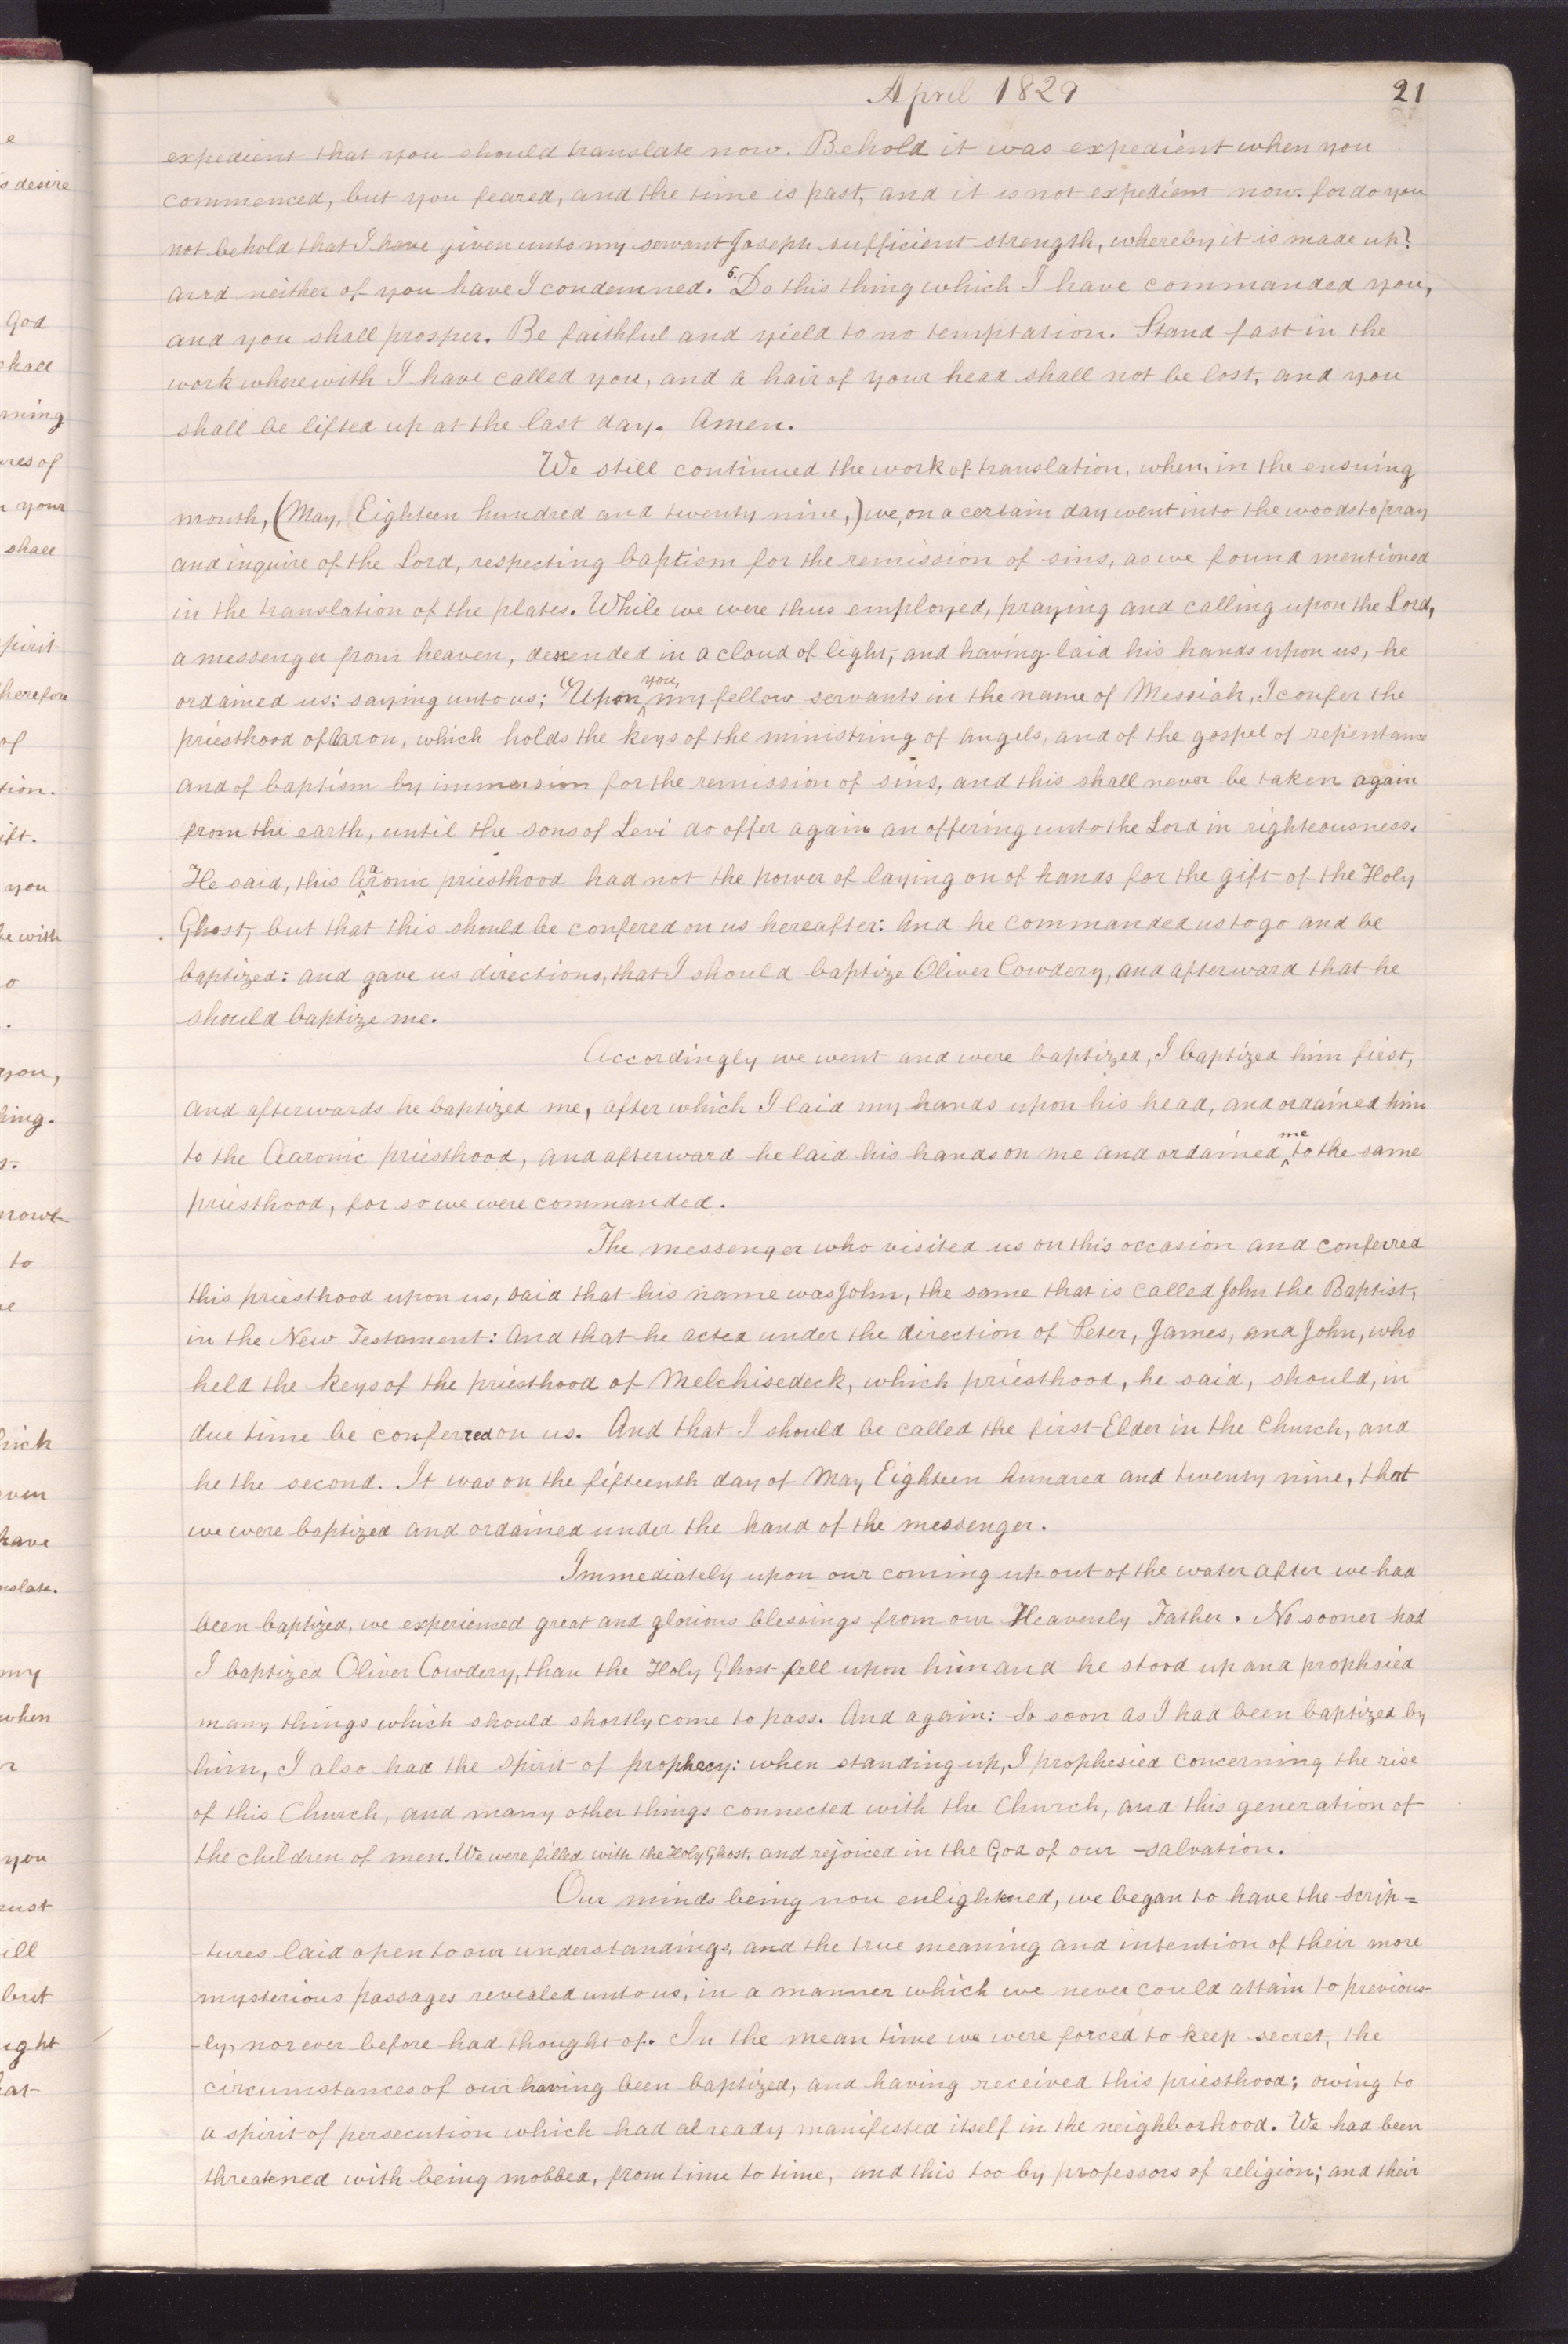 April 1829
21
expedient that you should translate now. Behold it was expedient when you
commenced, but you feared, and the time is past, and it is not expedient now. for do you
not behold that I have given unto my servant Joseph sufficient strength, whereby it is made up?
and neither of you have I condemned. 5. Do this thing which I have commanded you,
and you shall prosper. Be faithful and yield to no temptation. Stand fast in the
work wherewith I have called you, and a hair of your head shall not be lost, and you
shall be lifted up at the last day. Amen.
We still continued the work of translation, when, in the ensuing
month, (May, Eighteen hundred and twenty nine,) we, on a certain day went into the woods to pray
and inquire of the Lord, respecting baptism for the remission of sins, as we found mentioned
in the translation of the plates. While we were thus employed, praying and calling upon the Lord,
a messenger from heaven, descended in a cloud of light, and having laid his hands upon us, he
ordained us: saying unto us; "Upon you, my fellow servants in the name of Messiah, I confer the
priesthood of Aaron, which holds the keys of the ministring of angels, and of the gospel of repentance
and of baptism by immersion for the remission of sins, and this shall never be taken again
from the earth, until the sons of Levi do offer again an offering unto the Lord in righteousness.
He said, this Aaronic priesthood had not the power of laying on of hands for the gift of the Holy
Ghost, but that this should be confered on us hereafter: And he commanded us to go and be
baptized: and gave us directions, that I should baptize Oliver Cowdery, and afterward that he
should baptize me.
Accordingly we went and were baptized, I baptized him first,
and afterwards he baptized me, after which I laid my hands upon his head, and ordained him
to the Aaronic priesthood, and afterward he laid his hands on me and ordained me to the same
priesthood, for so we were commanded.
The messenger who visited us on this occasion and conferred
this priesthood upon us, said that his name was John, the same that is called John the Baptist,
in the New Testament: And that he acted under the direction of Peter, James, and John, who
held the keys of the priesthood of Melchisedeck, which priesthood, he said, should, in
due time be conferred on us. And that I should be called the first Elder in the Church, and
he the second. It was on the fifteenth day of May Eighteen hundred and twenty nine, that
we were baptized and ordained under the hand of the messenger.
Immediately upon our coming up out of the water after we had
been baptized, we experienced great and glorious blessings from our Heavenly Father. No sooner had
I baptized Oliver Cowdery, than the Holy Ghost fell upon him and he stood up and prophsied
many things which should shortly come to pass. And again: So soon as I had been baptized by
him, I also had the spirit of prophecy: when standing up, I prophesied concerning the rise
of this Church, and many other things connected with the Church, and this generation of
the children of men. We were filled with the Holy Ghost, and rejoiced in the God of our -salvation.
Our minds being now enlightened, we began to have the scrip=
-tures laid open to our understandings, and the true meaning and intention of their more
mysterious passages revealed unto us, in a manner which we never could attain to previous-
-ly, nor ever before had thought of. In the mean time we were forced to keep secret, the
circumstances of our having been baptized, and having received this priesthood; owing to
a spirit of persecution which had already manifested itself in the neighborhood. We had been
threatened with being mobbed, from time to time, and this too by professors of religion; and their